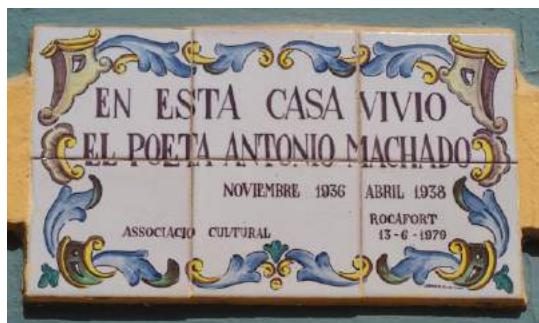 EN ESTA CASA VIVIO
EL POETA ANTONIO MACHADO
NOVIEMBRE 1936 ABRIL 1938
ASSOCIACIO CULTURAL ROCAFORT
13-6-1979